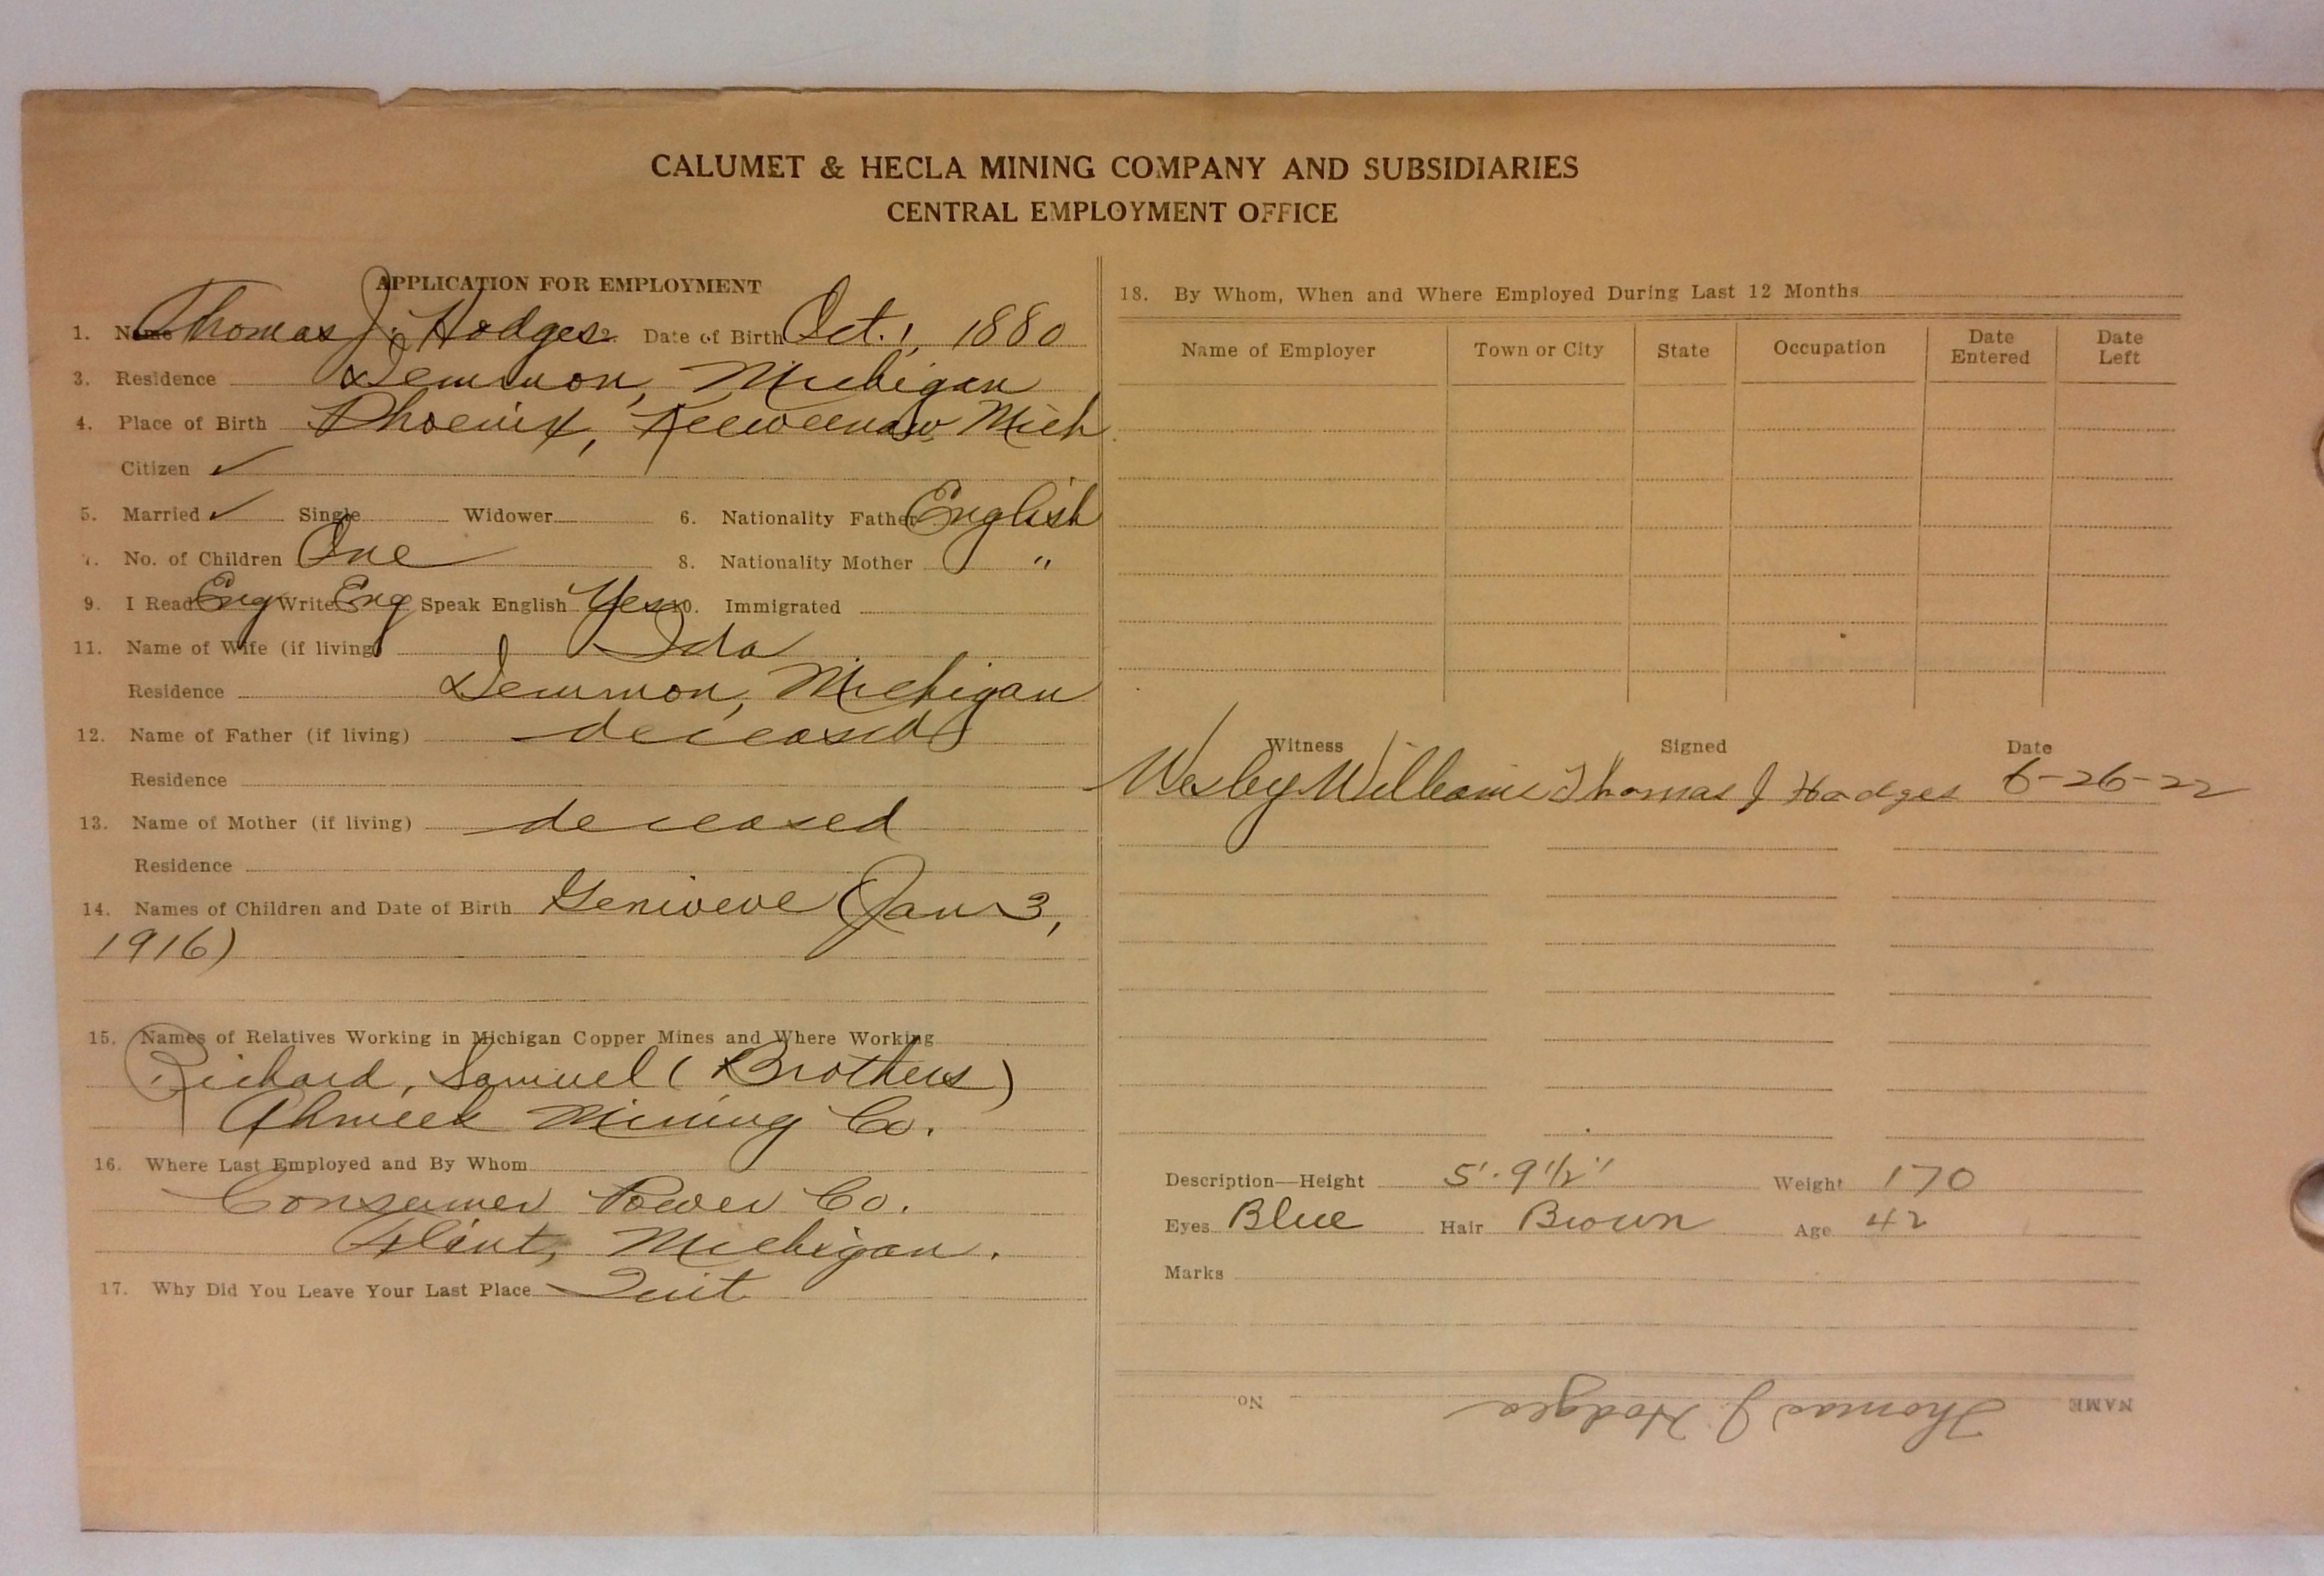 CALUMET & HECLA MINING COMPANY AND SUBSIDIARIES
CENTRAL EMPLOYMENT OFFICE
APPLICATION FOR EMPLOYMENT
1. Name Thomas J. Hodges 2. Date of Birth Oct. 1, 1880
3. Residence Demmon, Michigan
4. Place of Birth Phoenix, Keeweenaw Mich
Citizen ✓
5. Married ✓ Single Widower 6. Nationality Father English
7. No. of Children One 8. Nationality Mother "
9. I Read Eng Write Eng Speak English Yes 10. Immigrated
11. Name of Wife (if living) Ida
Residence Demmon, Michigan
12. Name of Father (if living) deceased
Residence
13. Name of Mother (if living) deceased
Residence
14. Names of Children and Date of Birth Geniveve (Jan 3,
1916)
15. Names of Relatives Working in Michigan Copper Mines and Where Working
Richard, Samuel (Brothers)
Ahmeek Mining Co.
16. Where Last Employed and By Whom
Consumer Power Co.
Flint, Michigan.
17. Why Did You Leave Your Last Place Quit
18. By Whom, When and Where Employed During Last 12 Months
Name of Employer Town or City State Occupation Date Entered Date Left
Witness Signed Date
Wesley Williams Thomas J Hodges 6-26-22
Description—Height 5'. 9 1/2" Weight 170
Eyes Blue Hair Brown Age 42
Marks
NAME Thomas J Hodges No.